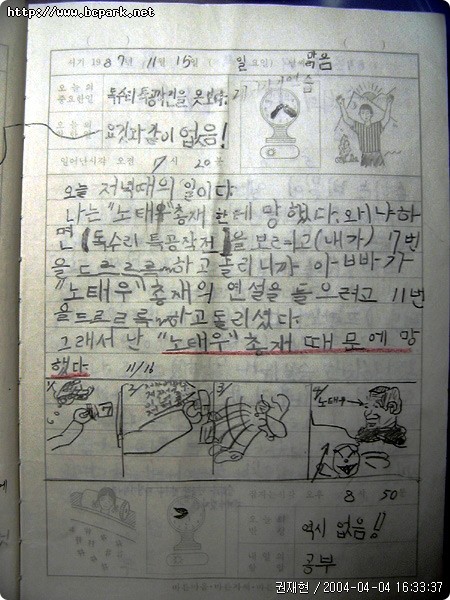 http://www.bcpark.net
일기 1987년 11월 15일 일요일 날씨 맑음
오늘의 중요한일 독수리특공작전을 못보다.
요것과 같이 없음!
일어난시각 오전 7시 20분
오늘 저녁때의 일이다
나는 "노태우"총재 한테 망했다. 왜냐하
면 (독수리 특공작저)을 보려고(내가) 7번
을 드르르르하고 돌리니까 아빠가
"노태우"총재의 연설을 들으려고 11번
을 드르르륵하고돌리셨다.
그래서 난 "노태우"총재 때문에 망
했다. 11/16
1/ 7
2/
3/
4/ 노태우
잠자는시간 오후 8시 50분
오늘의 반성 역시 없음!!
내일의 할일 공부
권재현 / 2004-04-04 16:33:37